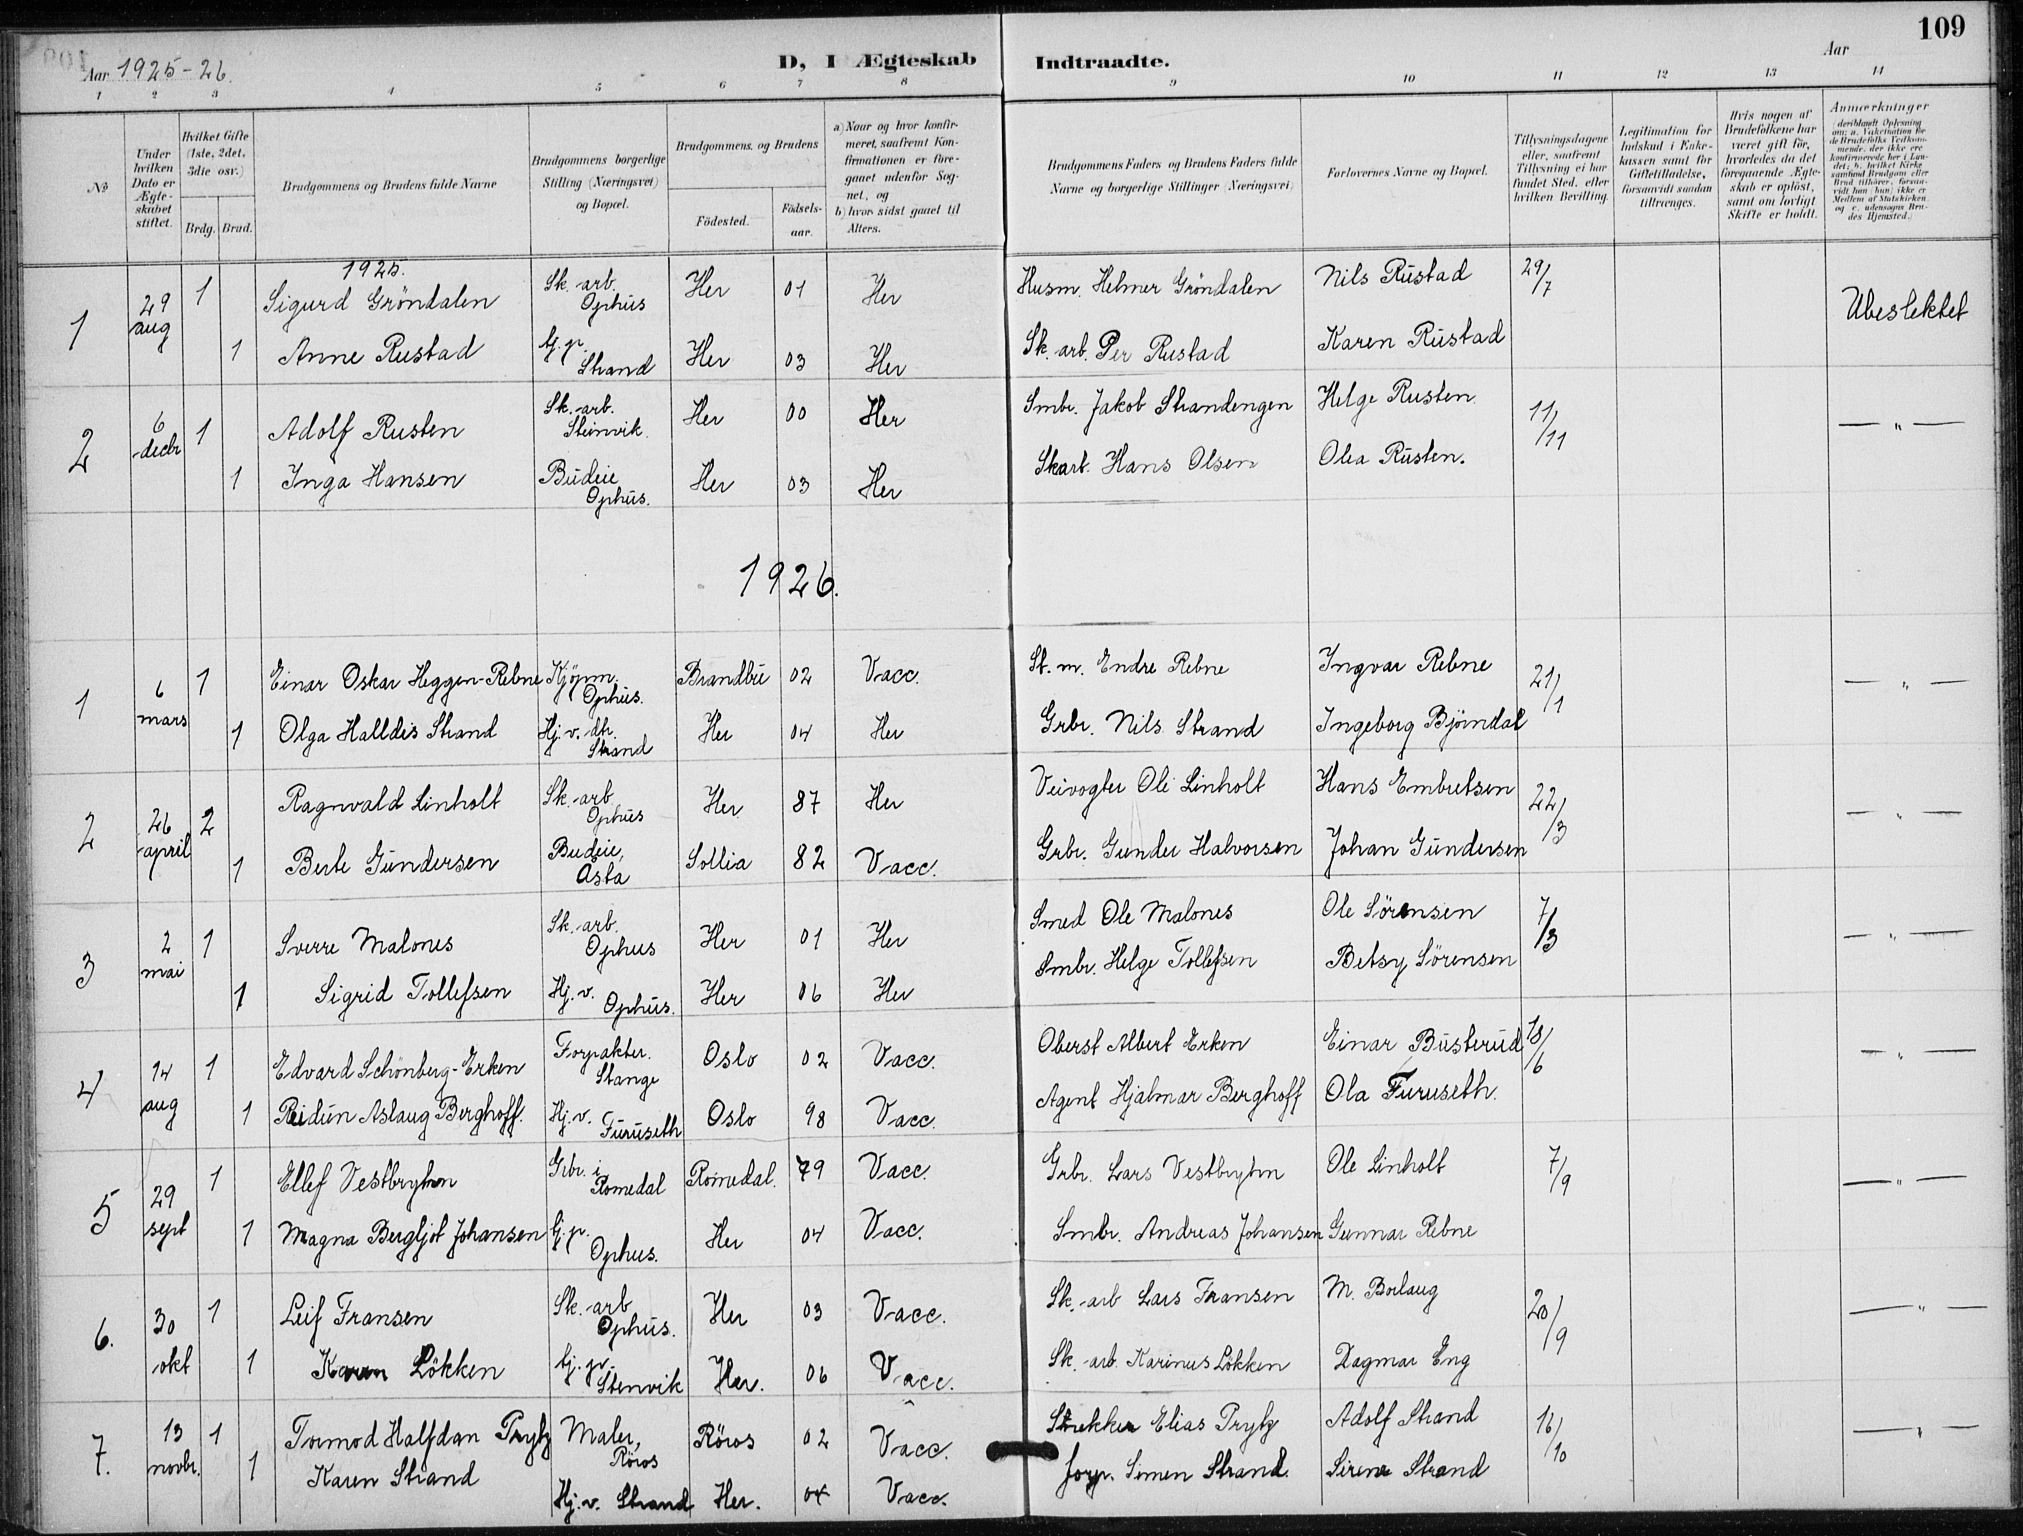 109
Aar 1925-26.
D, I Ægteskab Indtraadte.
Aar
1 2 3 4 5 6 7 8 9 10 11 12 13 14
№
Under hvilken Dato er Ægteskabet stiftet.
Hvilket Gifte (1ste, 2det, 3die osv.)
Brdg. Brud.
Brudgommens og Brudens fulde Navne
Brudgommens borgerlige Stilling (Næringsvei) og Bopæl.
Brudgommens og Brudens
Födested.
Födselsaar.
a) Naar og hvor konfirmeret, saafremt Konfirmationen er foregaaet udenfor Sognet, og
b) hvor sidst gaaet til Alters.
Brudgommens Faders og Brudens Faders fulde Navne og borgerlige Stillinger (Næringsvei)
Forlovernes Navne og Bopæl.
Tillysningsdagene eller, saafremt Tillysning ei har fundet Sted, efter hvilken Bevilling.
Legitimation for Indskud i Enkekassen samt for Giftetilladelse, forsaavidt saadan tiltrænges.
Hvis nogen af Brudefolkene har været gift för, hvorledes da det foregaaende Ægteskab er oplöst, samt om lovligt Skifte er holdt.
Anmærkninger
(deriblandt Oplysning om: a. Vakcination for de Brudefolks Vedkommende, der ikke ere konfirmerede her i Landet; b. hvilket Kirkesamfund Brudgom eller Brud tilhörer, forsaavidt han (hun) ikke er Medlem af Statskirken, og c. udensogns Brudes Hjemsted.)
1925.
1 29 aug 1 Sigurd Gröndalen Sk.-arb. Ophus Her 01 Her Husm. Helmer Gröndalen Nils Rustad 29/7 Ubeslektet
1 Anne Rustad Tj.p. Strand Her 03 Her Sk.-arb. Per Rustad Karen Rustad
2 6 decbr 1 Adolf Rusten Sk.-arb. Steinvik. Her 00 Her Smbr. Jakob Strandengen Helge Rusten. 11/11 — " —
1 Inga Hansen Budeie Ophus. Her 03 Her Skarb. Hans Olsen Olea Rusten.
1926.
1 6 mars 1 Einar Oskar Heggen-Rebne Kjöpm. Ophus. Brandbu 02 Vacc. St.m. Endre Rebne Ingvar Rebne 21/1 — " —
1 Olga Halldis Strand Hj.v. dtr. Strand Her 04 Her Grbr. Nils Strand Ingeborg Björndal
2 26 april 2 Ragnvald Linholt Sk.-arb. Ophus Her 87 Her Veivogter Ole Linholt Hans Embretsen 22/3 — " —
1 Berte Gundersen Budeie, Åsta Sollia 82 Vacc. Grbr. Gunder Halvorsen Johan Gundersen
3 2 mai 1 Sverre Malones Sk.-arb. Ophus Her 01 Her Smed Ole Malones Ole Sörensen 7/3 — " —
1 Sigrid Tollefsen Hj.v. Ophus. Her 06 Her Smbr. Helge Tollefsen Betsy Sörensen
4 14 aug 1 Edvard Schönberg-Erken Forpakter. Stange Oslo 02 Vacc. Oberst Albert Erken Einar Busterud 18/6 — " —
1 Reidun Aslaug Berghoff. Hj.v. Furuseth Oslo 98 Vacc. Agent Hjalmar Berghoff Ola Furuseth.
5 29 sept 1 Ellef Vestbryhn Grbr. i Romedal Romedal. 79 Vacc. Grbr. Lars Vestbryhn Ole Linholt 7/9 — " —
1 Magna Bergljot Johansen Tj.p. Ophus. Her 04 Vacc. Smbr. Andreas Johansen Gunnar Rebne
6. 30 okt 1 Leif Fransen Sk.-arb Ophus. Her 03 Vacc. Sk.-arb Lars Fransen M. Borlaug 20/9 — " —
1 Karen Lökken Tj.p. Stenvik Her. 06 Vacc. Sk.-arb. Karinus Lökken Dagmar Eng
7. 13 novbr. 1 Tormod Halfdan Prytz Maler, Röros Röros 02 Vacc. Strekker Elias Prytz Adolf Strand 16/10 — " —
1 Karen Strand Hj.v. Strand Her. 04 Vacc. forp. Simen Strand. Sirene Strand